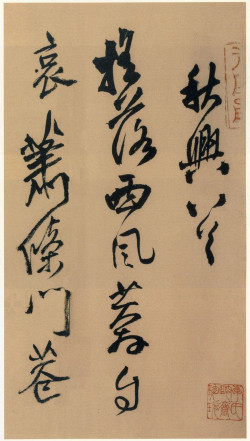 秋興八首
搖落西風莽自
哀蕭條門巷